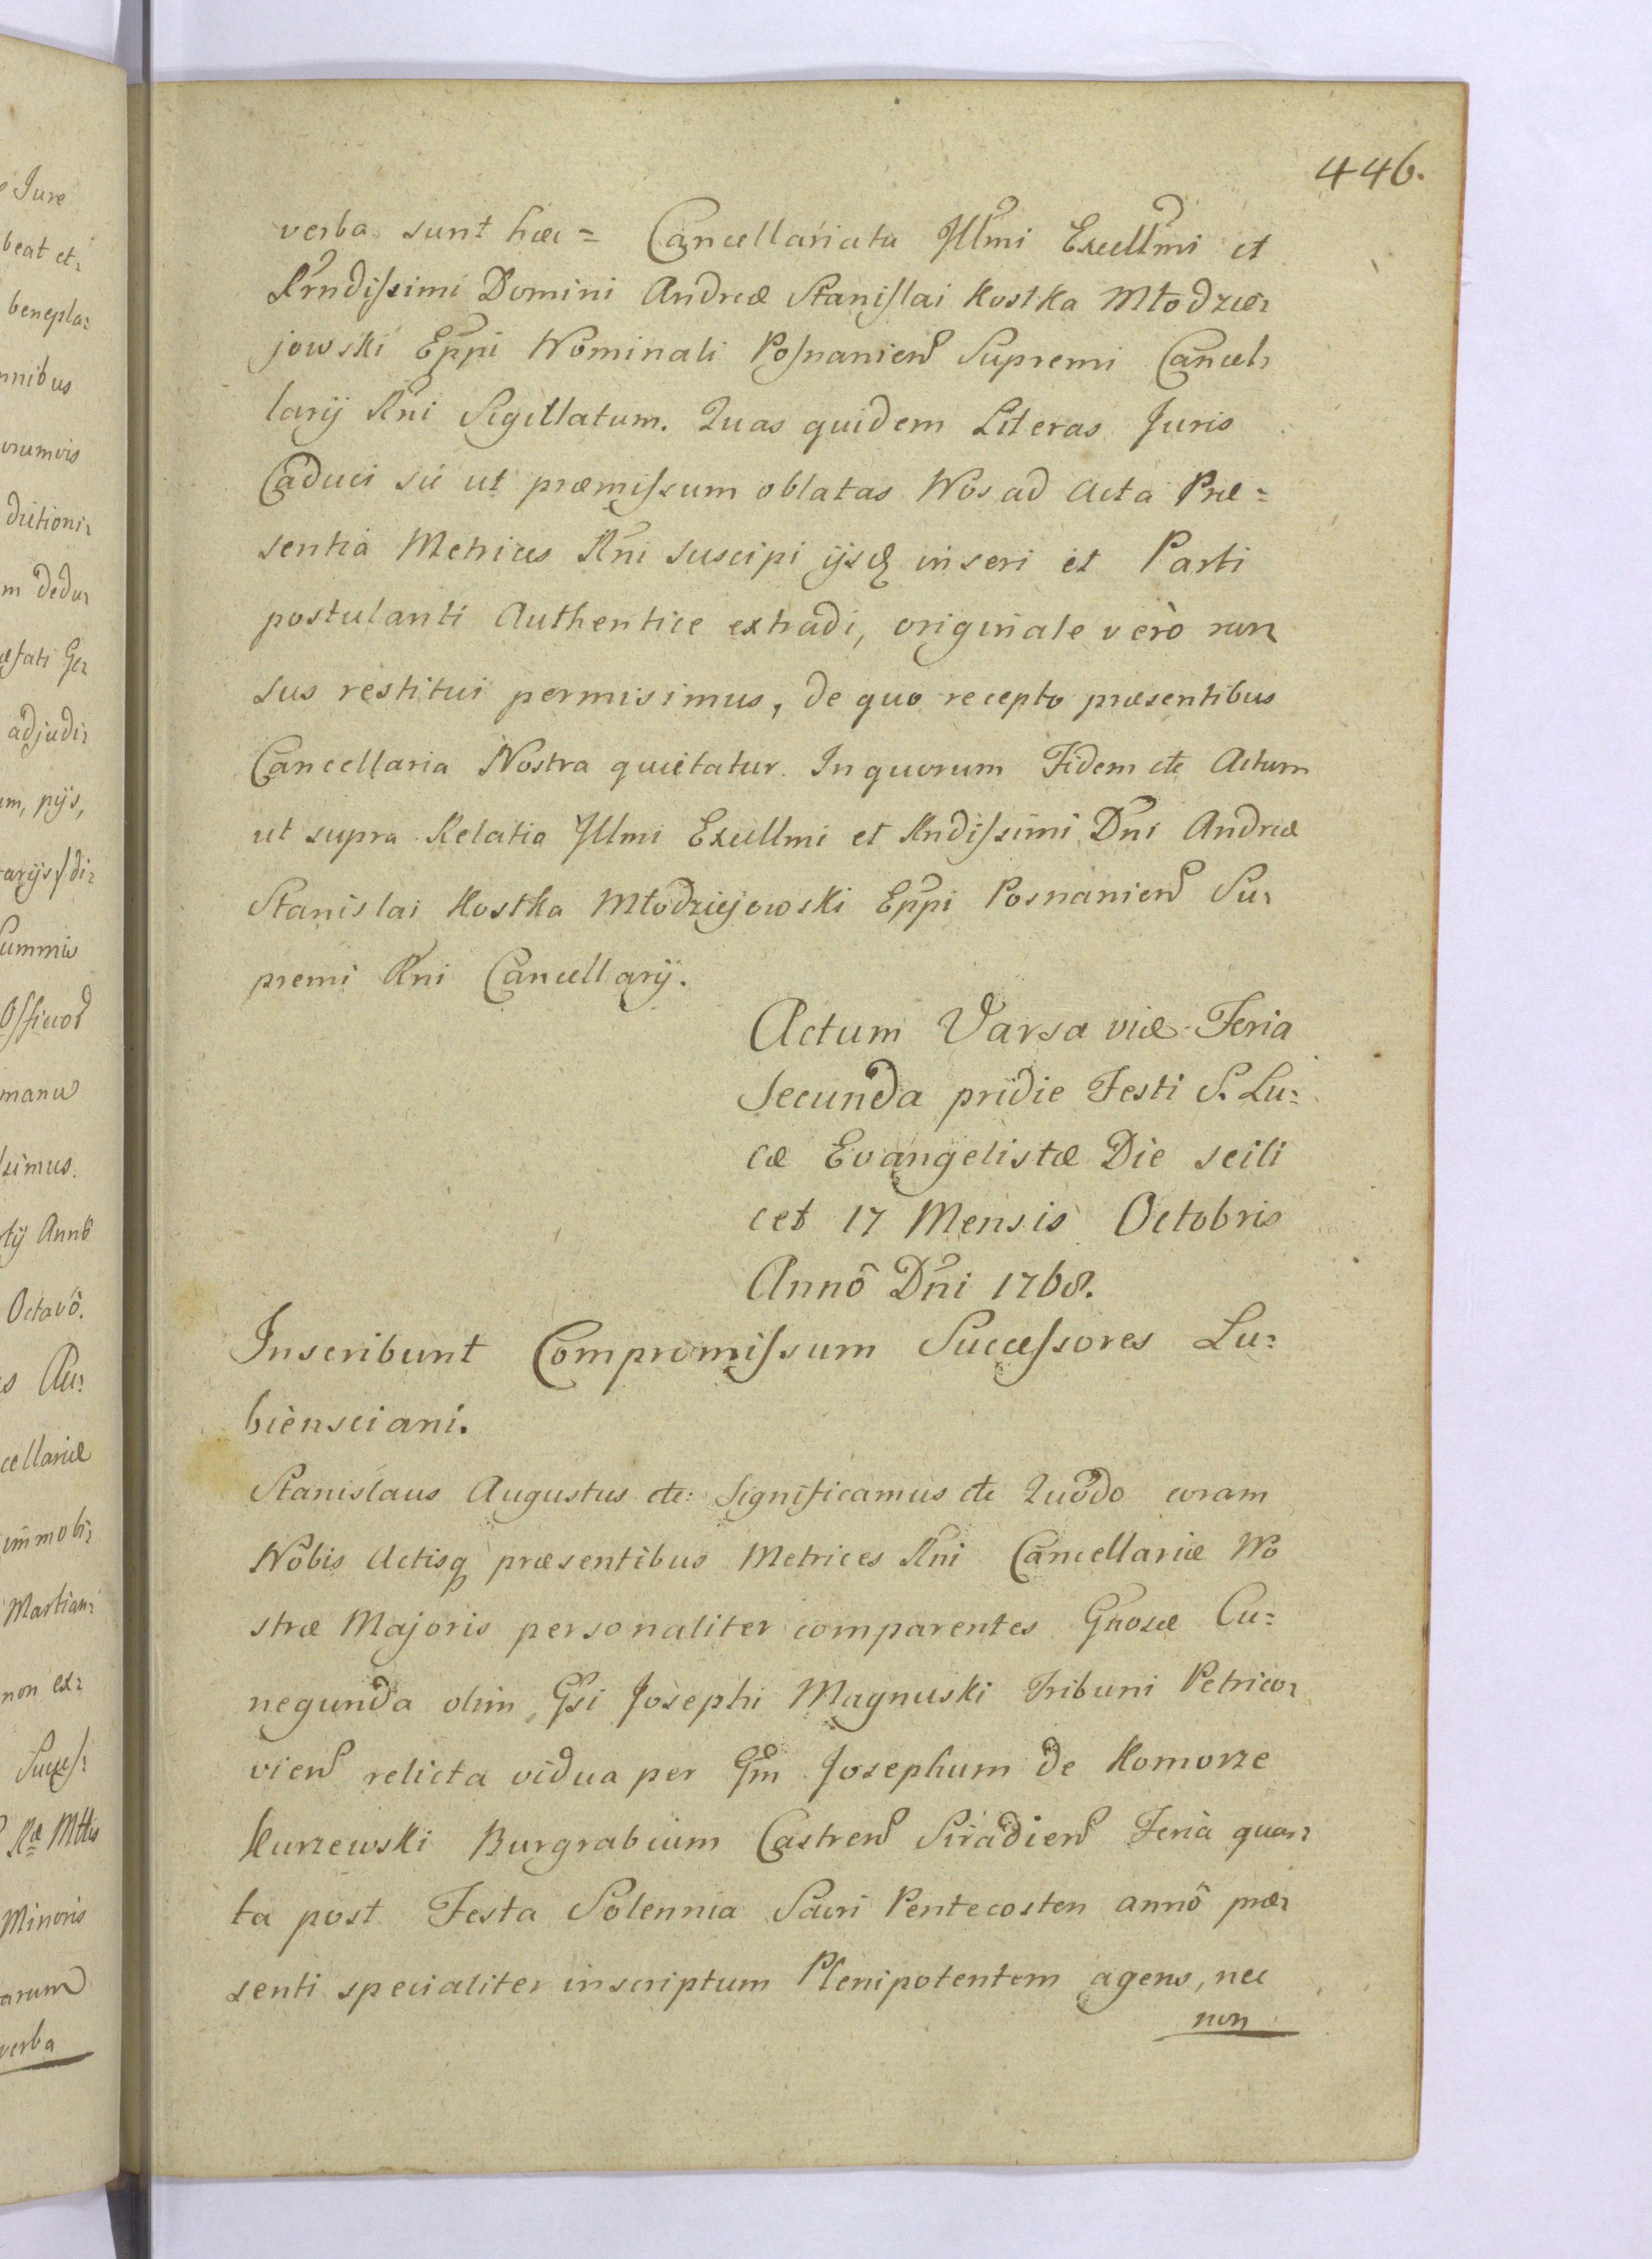 446.
verba sunt hæc = Cancellariatu Jllmi Excellmi et
Rrndissimi Domini Andreæ Stanislai Kostka Młodzie-
jowski Eppi Nominati Posnanien Supremi Cancel-
larij Rni Sigillatum. Quas quidem Literas Juris
Caduci sic ut præmissum oblatas Nos ad Acta Præ=
sentia Metrices Rni suscipi ijsq inseri et Parti
postulanti Authentice extradi, originale verò rur-
sus restitui permisimus, de quo recepto præsentibus
Cancellaria Nostra quietatur. In quorum Fidem etc Actum
ut supra Relatio Jllmi Excellmi et Rndissimi Dni Andreæ
Stanislai Kostka Młodziejowski Eppi Posnanien Su-
premi Rni Cancellarij.
Actum Varsaviæ Feria
Secunda pridie Festi S. Lu=
cæ Evangelistæ Die scili
cet 17 Mensis Octobris
Annô Dni 1768.
Inscribunt Compromissum Successores Lu=
biensciani.
Stanislaus Augustus etc: Significamus etc Quòdo coram
Nobis Actisq præsentibus Metrices Rni Cancellariæ No
stræ Majoris personaliter comparentes Gnosæ Cu=
negunda olim Gsi Josephi Magnuski Tribuni Petrico-
vien relicta vidua per Gm Josephum de Komorze
Kurzewski Burgrabium Castren Siradien Feria quar-
ta post Festa Solennia Sacri Pentecosten annô præ-
senti specialiter inscriptum Plenipotentem agens, nec
non
Jure
beat et-
benepla-
mnibus
orumvis
dictioni-
m dedu-
Ge-
adjudi-
um, pijs,
di-
Summis
Officior
manu
simus.
tij Annô
Octavô.
s Au-
cellariæ
immobi-
Martian-
non ex-
Success-
Ræ Mttis
Minoris
arum
verba